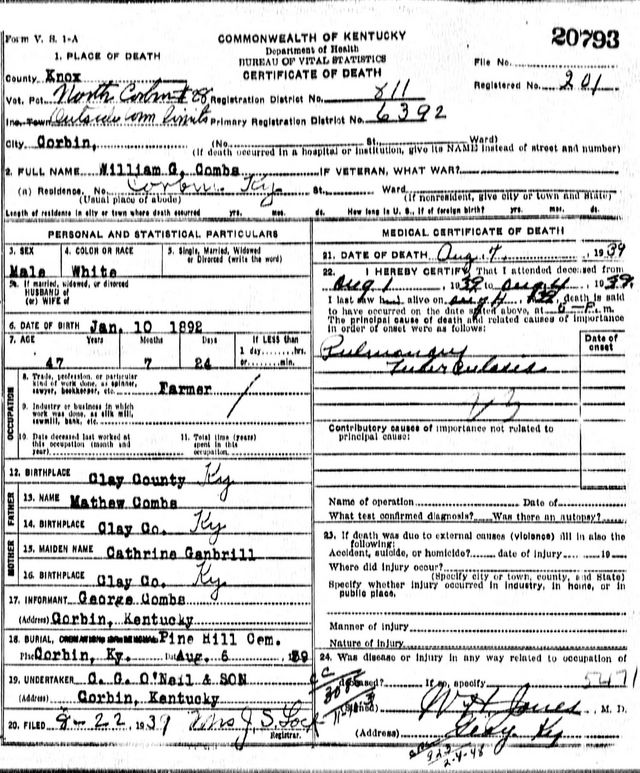 Form V. S. 1-A
COMMONWEALTH OF KENTUCKY
Department of Health
BUREAU OF VITAL STATISTICS
CERTIFICATE OF DEATH
20793
1. PLACE OF DEATH
File No.
County Knox
Registered No. 201
Vot. Pct. North Corbin #28 Registration District No. 811
Inc. Town Outside corp limits Primary Registration District No. 6392
City Corbin, (No. St., Ward)
(If death occurred in a hospital or institution, give its NAME instead of street and number)
2. FULL NAME William G. Combs IF VETERAN, WHAT WAR?
(a) Residence. No. Corbin Ky. St. Ward
(Usual place of abode) (If nonresident, give city or town and State)
Length of residence in city or town where death occurred yrs. mos. ds. How long in U. S., if of foreign birth? yrs. mos. ds.
PERSONAL AND STATISTICAL PARTICULARS
3. SEX 4. COLOR OR RACE 5. Single, Married, Widowed
or Divorced (write the word)
Male White
5a. If married, widowed, or divorced
HUSBAND of
(or) WIFE of
6. DATE OF BIRTH Jan. 10 1892
7. AGE Years Months Days If LESS than
1 day, hrs.
47 7 24 or min.
OCCUPATION
8. Trade, profession, or particular
kind of work done, as spinner,
sawyer, bookkeeper, etc. Farmer
9. Industry or business in which
work was done, as silk mill,
sawmill, bank, etc.
10. Date deceased last worked at
this occupation (month and
year)
11. Total time (years)
spent in this
occupation.
12. BIRTHPLACE Clay County Ky
FATHER
13. NAME Mathew Combs
14. BIRTHPLACE Clay Co. Ky
MOTHER
15. MAIDEN NAME Cathrine Ganbrill
16. BIRTHPLACE Clay Co. Ky
17. INFORMANT George Combs
(Address) Corbin, Kentucky
18. BURIAL, CREMATION OR REMOVAL Pine Hill Cem.
Place Corbin, Ky. Date Aug. 6 1939
19. UNDERTAKER C. G. O'Neil & SON
(Address) Corbin, Kentucky
20. FILED 8-22 1939 Mrs J. S. Lock
Registrar.
MEDICAL CERTIFICATE OF DEATH
21. DATE OF DEATH Aug. 4. 1939
22. I HEREBY CERTIFY, That I attended deceased from
Aug 1 1939 to Aug 4 1939.
I last saw him alive on Aug 4 1939, death is said
to have occurred on the date stated above, at P. m.
The principal cause of death and related causes of importance
in order of onset were as follows:
Date of
onset
Pulmonary
Tuberculosis
Contributory causes of importance not related to
principal cause:
Name of operation Date of
What test confirmed diagnosis? Was there an autopsy?
23. If death was due to external causes (violence) fill in also the
following:
Accident, suicide, or homicide? date of injury 19
Where did injury occur?
(Specify city or town, county, and State)
Specify whether injury occurred in industry, in home, or in
public place.
Manner of injury
Nature of injury
24. Was disease or injury in any way related to occupation of
deceased? If so, specify 5471
(Signed) W H Jones, M. D.
(Address) Gray Ky
2-4-48